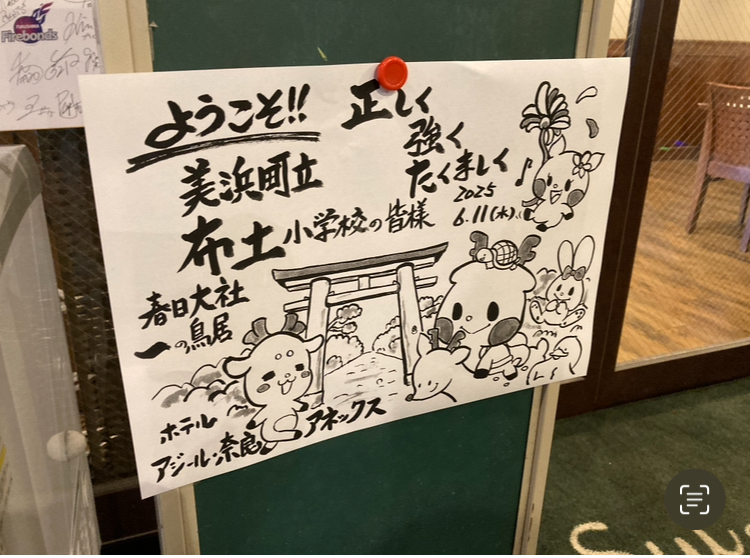 Firebonds
ようこそ!!
美浜町立
布土小学校の皆様
正しく
強く
たくましく
2025
6.11(水)
春日大社
一の鳥居
ホテル
アジール・奈良アネックス